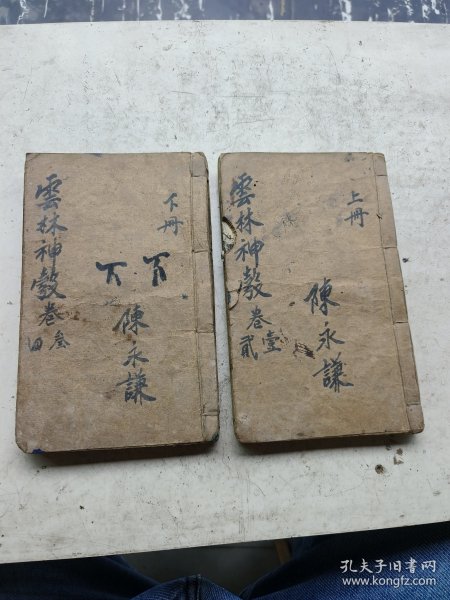 上冊
雲林神彀卷壹貳
陳永謙
下冊
雲林神彀卷叁四
下下
陳永謙
孔夫子旧书网
www.kongfz.com